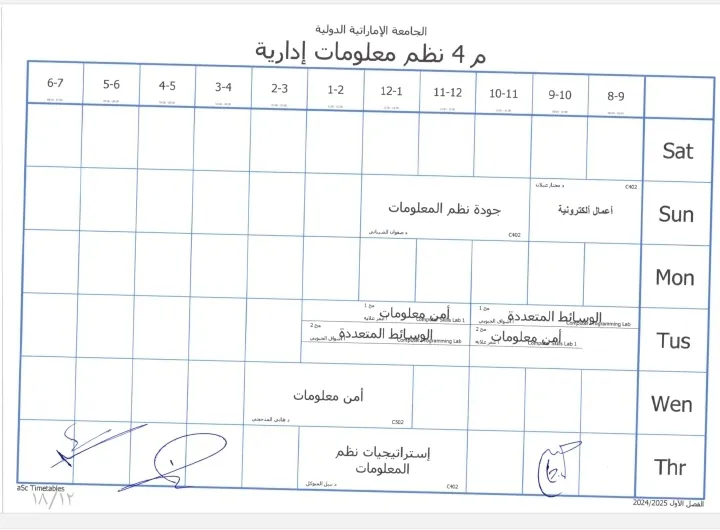 الجامعة الإماراتية الدولية
م 4 نظم معلومات إدارية
8-9
9-10
10-11
11-12
12-1
1-2
2-3
3-4
4-5
5-6
6-7
Sat
Sun
C402
أعمال ألكترونية
جودة نظم المعلومات
C402
Mon
Tus
مج 1
الوسائط المتعددة
Computer Programming Lab
مج 2
أمن معلومات
Computer Skills Lab 1
مج 1
أمن معلومات
Computer Skills Lab 1
مج 2
الوسائط المتعددة
Computer Programming Lab
Wen
أمن معلومات
C502
Thr
إستراتيجيات نظم
المعلومات
C402
aSc Timetables
١٨/١٢
الفصل الأول 2024/2025